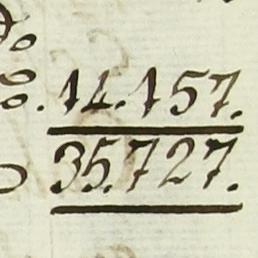 14.157.
35.727.